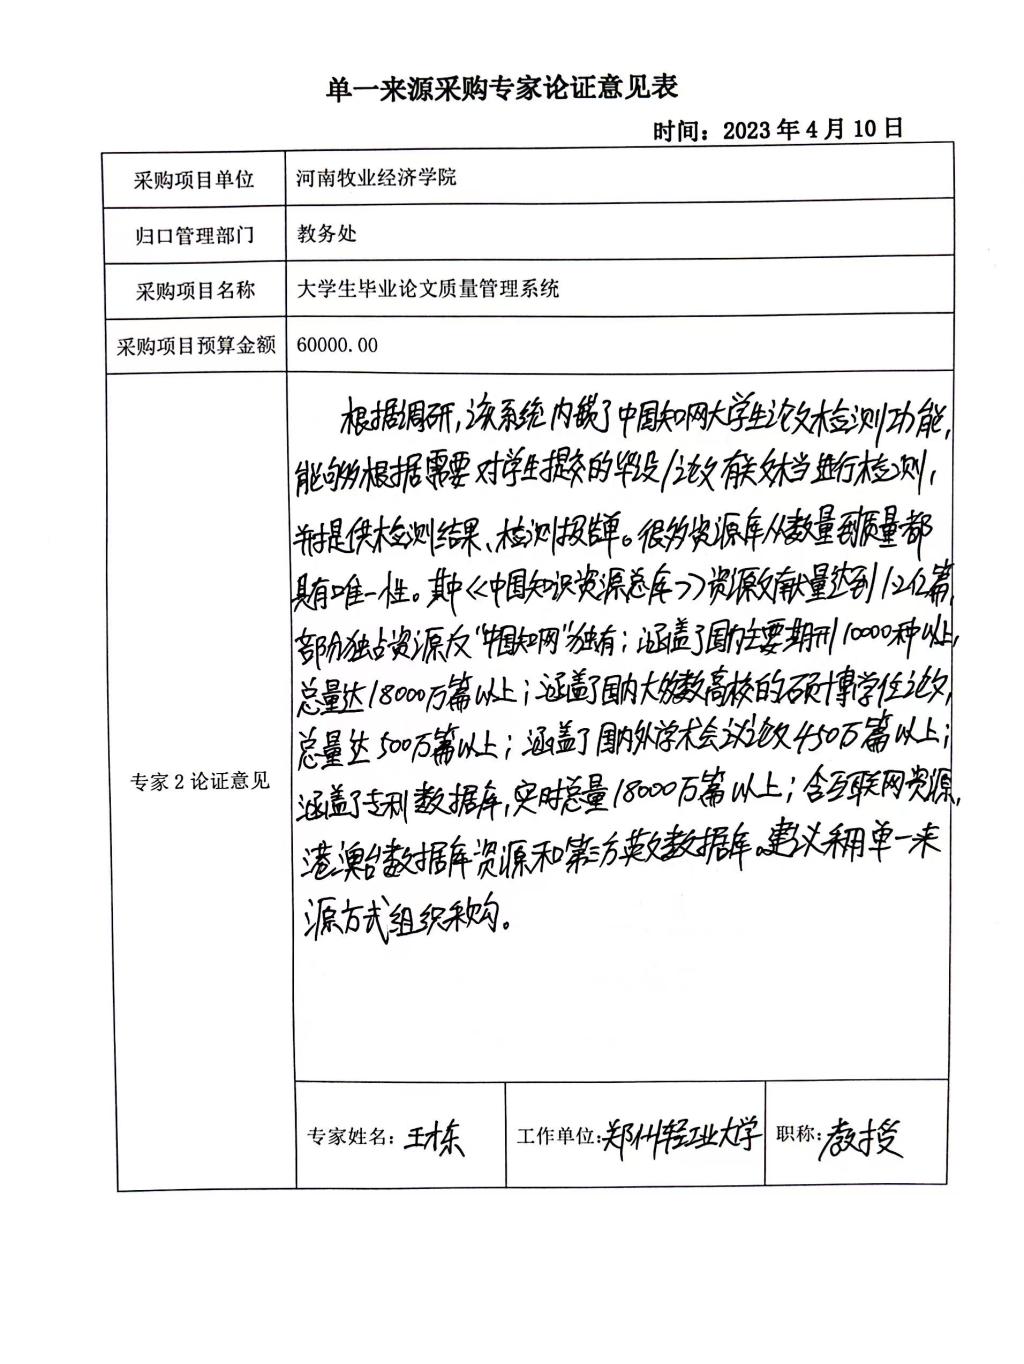 单一来源采购专家论证意见表
时间：2023年4月10日
采购项目单位 河南牧业经济学院
归口管理部门 教务处
采购项目名称 大学生毕业论文质量管理系统
采购项目预算金额 60000.00
专家2论证意见
根据调研，该系统内嵌了中国知网大学生论文检测功能，
能够根据需要对学生提交的毕设/论文有关文档进行检测，
并提供检测结果、检测报告单。很多资源库从数量到质量都
具有唯一性。其中《中国知识资源总库》资源文献量达到1.2亿篇，
部分独占资源仅“中国知网”独有；涵盖了国内主要期刊10000种以上，
总量达18000万篇以上；涵盖了国内大多数高校的硕博学位论文，
总量达500万篇以上；涵盖了国内外学术会议论文450万篇以上；
涵盖了专利数据库，实时总量18000万篇以上；含互联网资源，
港澳台数据库资源和第三方英文数据库。建议采用单一来
源方式组织采购。
专家姓名：王栋 工作单位：郑州轻工业大学 职称：教授